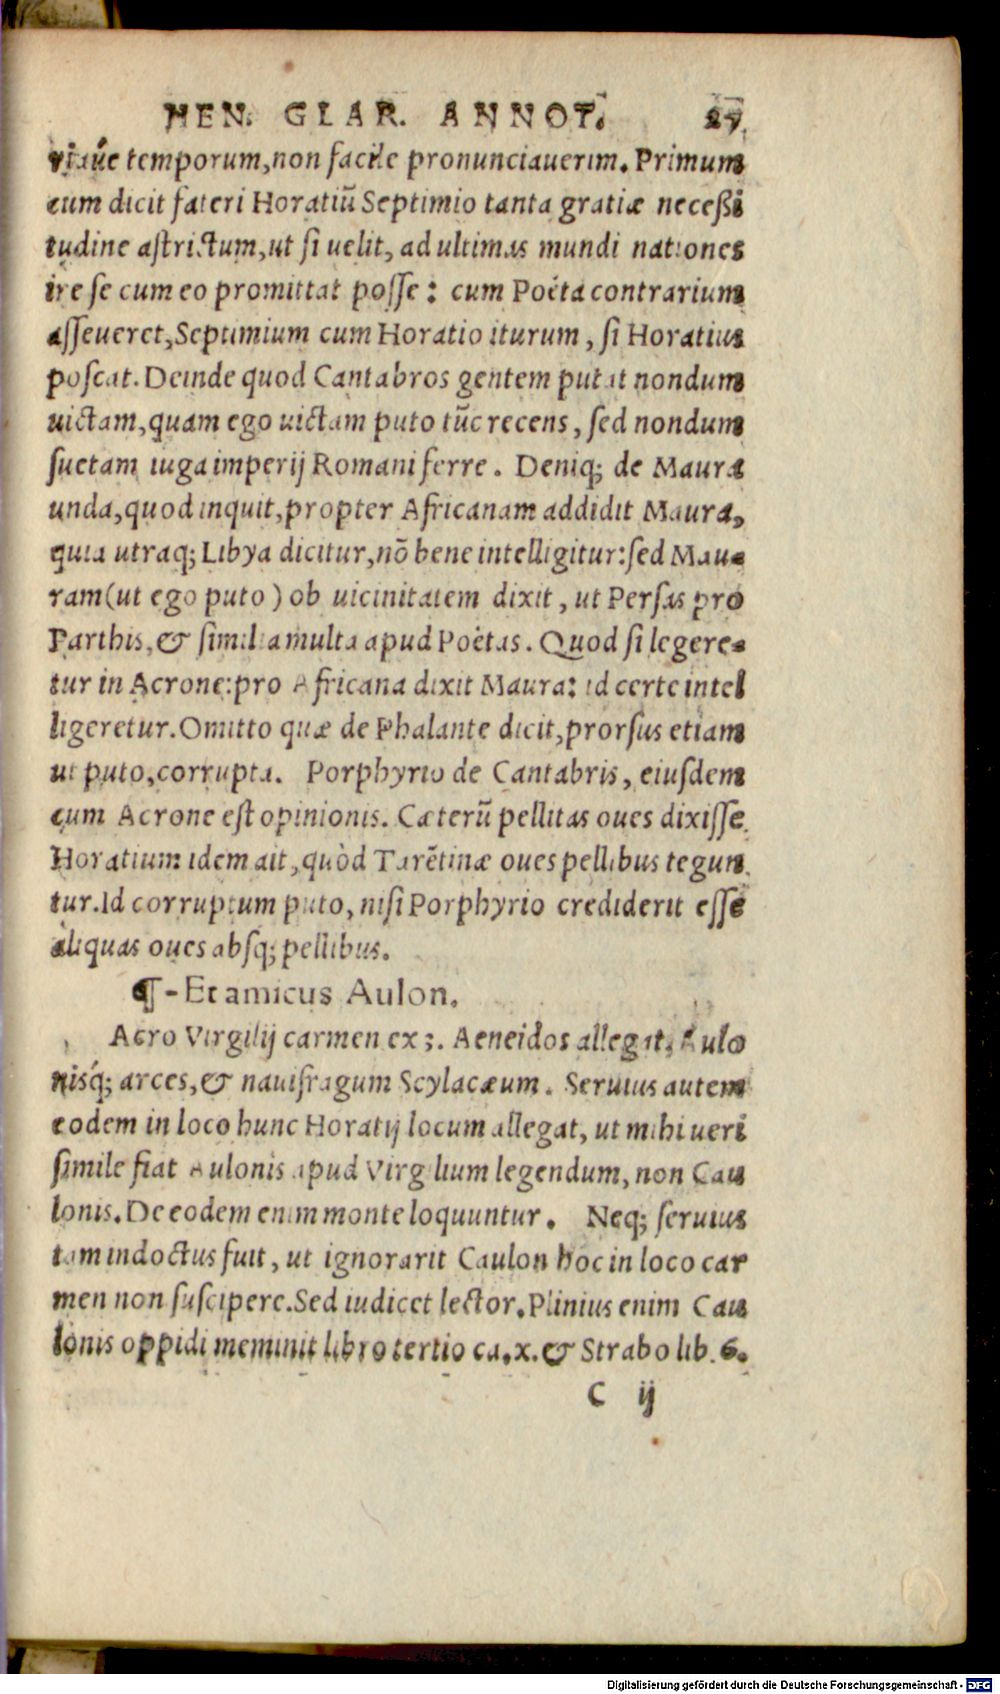 HEN. GLAR. ANNOT. 27.
riaúe temporum, non facile pronunciauerim. Primum
eum dicit fateri Horatiũ Septimio tanta gratiæ neceßi
tudine astrictum, ut si uelit, ad ultimas mundi nationes
ire se cum eo promittat posse: cum Poëta contrarium
asseueret, Septimium cum Horatio iturum, si Horatius
poscat. Deinde quod Cantabros gentem putat nondum
uictam, quam ego uictam puto tũc recens, sed nondum
suetam iuga imperij Romani ferre. Deniq; de Maura
unda, quod inquit, propter Africanam addidit Maura,
quia utraq; Libya dicitur, nõ bene intelligitur: sed Mau-
ram (ut ego puto) ob uicinitatem dixit, ut Persas pro
Parthis, & similia multa apud Poëtas. Quod si legere-
tur in Acrone: pro Africana dixit Maura: id certe intel
ligeretur. Omitto quæ de Phalante dicit, prorsus etiam
ut puto, corrupta. Porphyrio de Cantabris, eiusdem
cum Acrone est opinionis. Cæterũ pellitas oues dixisse
Horatium idem ait, quòd Tarẽtinæ oues pellibus tegun
tur. Id corruptum puto, nisi Porphyrio crediderit esse
aliquas oues absq; pellibus.
¶-Et amicus Aulon.
Acro Virgilij carmen ex 3. Aeneidos allegat. Aulo
nisq́; arces, & nauifragum Scylacæum. Seruius autem
eodem in loco hunc Horatij locum allegat, ut mihi ueri
simile fiat Aulonis apud Virgilium legendum, non Cau
lonis. De eodem enim monte loquuntur. Neq; seruius
tam indoctus fuit, ut ignorarit Caulon hoc in loco car
men non suscipere. Sed iudicet lector. Plinius enim Cau
lonis oppidi meminit libro tertio ca. x. & Strabo lib. 6.
C ij
Digitalisierung gefördert durch die Deutsche Forschungsgemeinschaft - DFG